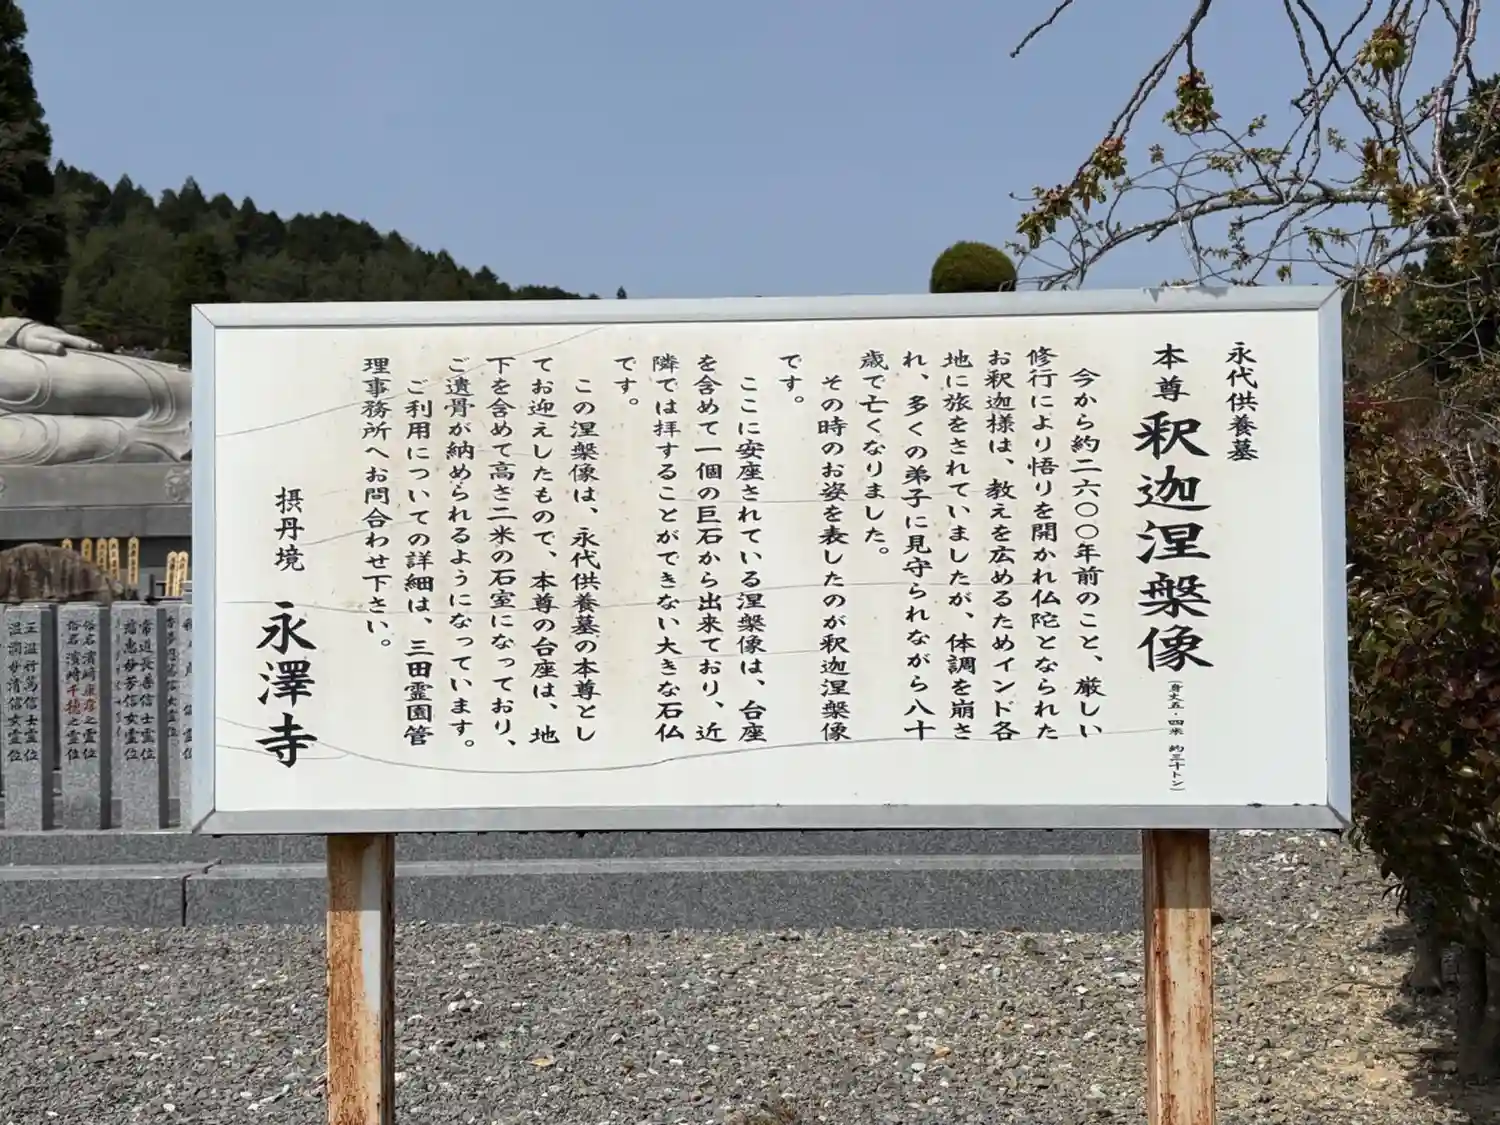 永代供養墓
本尊 釈迦涅槃像(身丈五・四米 約三十トン)
今から約二六〇〇年前のこと、厳しい
修行により悟りを開かれ仏陀となられた
お釈迦様は、教えを広めるためインド各
地に旅をされていましたが、体調を崩さ
れ、多くの弟子に見守られながら八十
歳で亡くなりました。
その時のお姿を表したのが釈迦涅槃像
です。
ここに安座されている涅槃像は、台座
を含めて一個の巨石から出来ており、近
隣では拝することができない大きな石仏
です。
この涅槃像は、永代供養墓の本尊とし
てお迎えしたもので、本尊の台座は、地
下を含めて高さ二米の石室になっており、
ご遺骨が納められるようになっています。
ご利用についての詳細は、三田霊園管
理事務所へお問合わせ下さい。
摂丹境 永澤寺